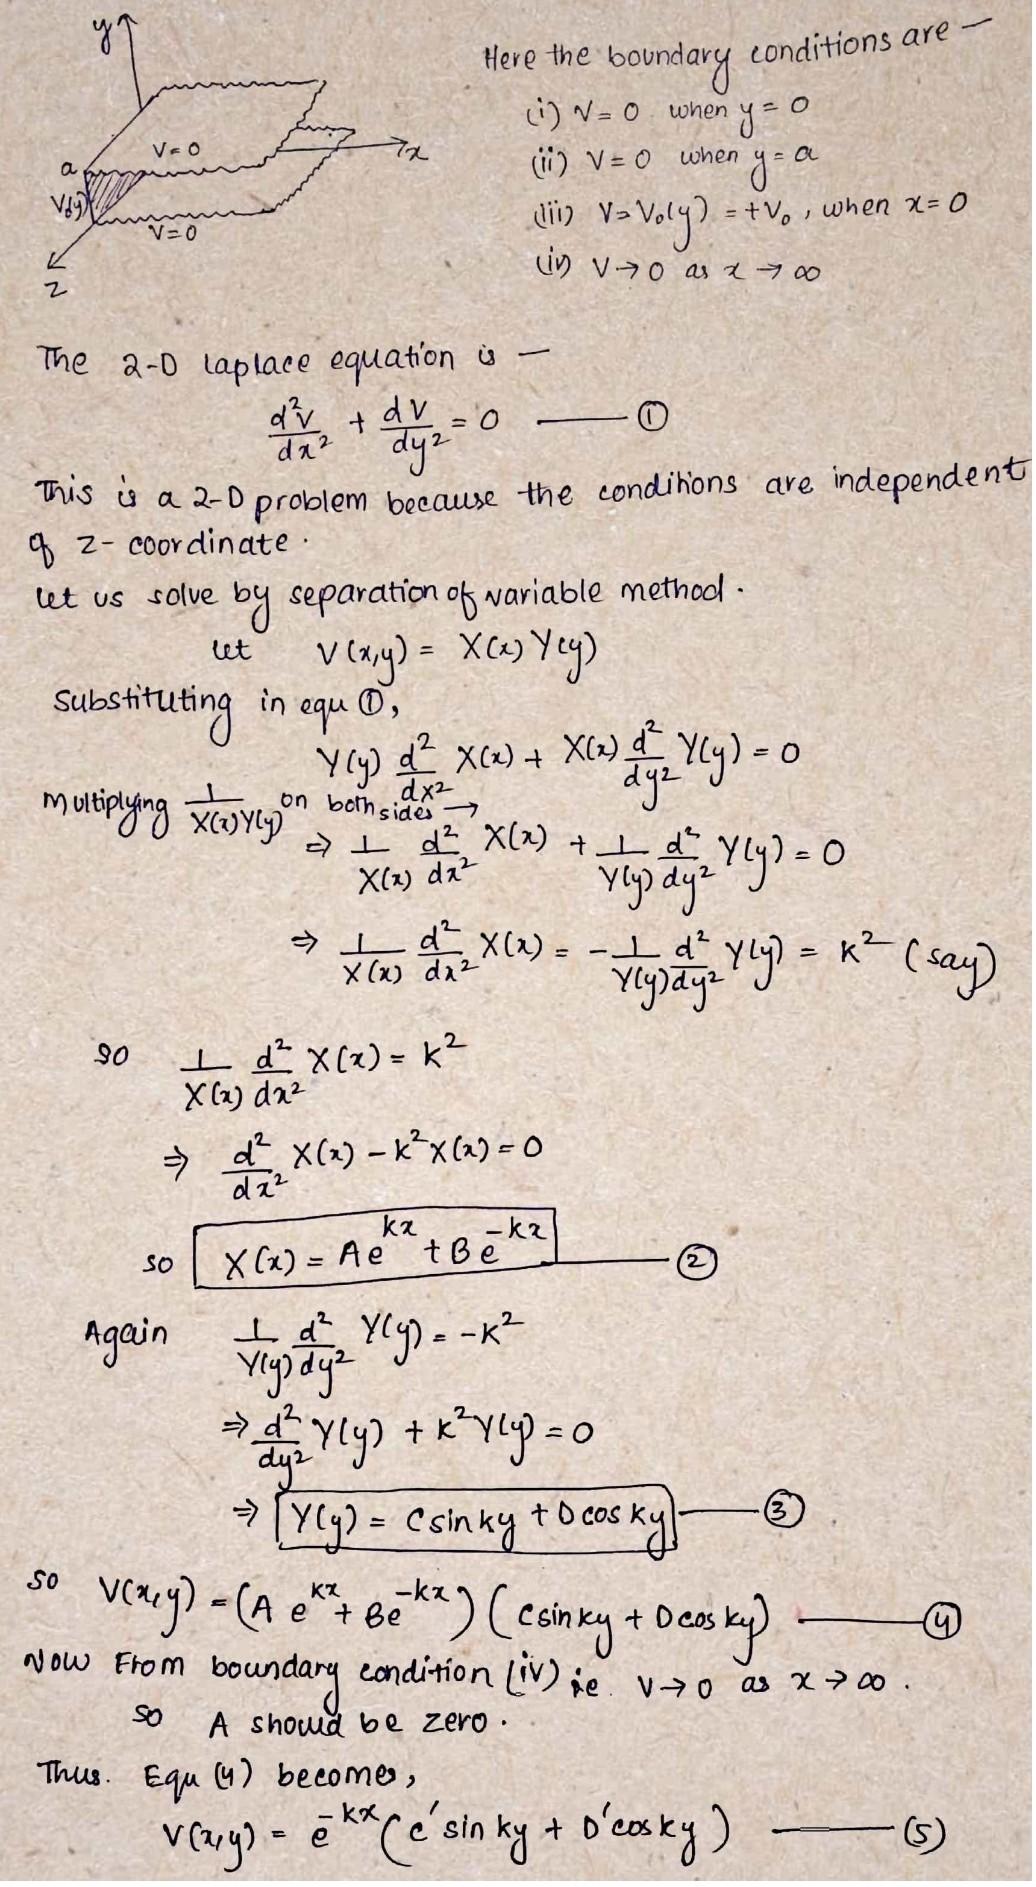 y
Here the boundary conditions are –
(i) V = 0 when y = 0
V = 0
x
a
(ii) V = 0 when y = a
V₀(y)
(iii) V = V₀(y) = +V₀, when x = 0
V = 0
(iv) V → 0 as x → ∞
z
The 2-D laplace equation is –
d²V/dx² + dV/dy² = 0 —— ①
This is a 2-D problem because the conditions are independent
of z- coordinate.
let us solve by separation of variable method.
let V(x,y) = X(x) Y(y)
Substituting in equ ①,
Y(y) d²/dx² X(x) + X(x) d²/dy² Y(y) = 0
Multiplying 1/X(x)Y(y) on both sides →
⇒ 1/X(x) d²/dx² X(x) + 1/Y(y) d²/dy² Y(y) = 0
⇒ 1/X(x) d²/dx² X(x) = - 1/Y(y) d²/dy² Y(y) = k² (say)
so 1/X(x) d²/dx² X(x) = k²
⇒ d²/dx² X(x) – k² X(x) = 0
so X(x) = Ae^kx + Be^-kx —— ②
Again 1/Y(y) d²/dy² Y(y) = -k²
⇒ d²/dy² Y(y) + k² Y(y) = 0
⇒ Y(y) = C sin ky + D cos ky —— ③
so V(x,y) = (A e^kx + Be^-kx) (C sin ky + D cos ky) —— ④
Now From boundary condition (iv) ie. V → 0 as x → ∞.
so A should be zero.
Thus. Equ (4) becomes,
V(x,y) = e^-kx (C' sin ky + D' cos ky) —— (5)